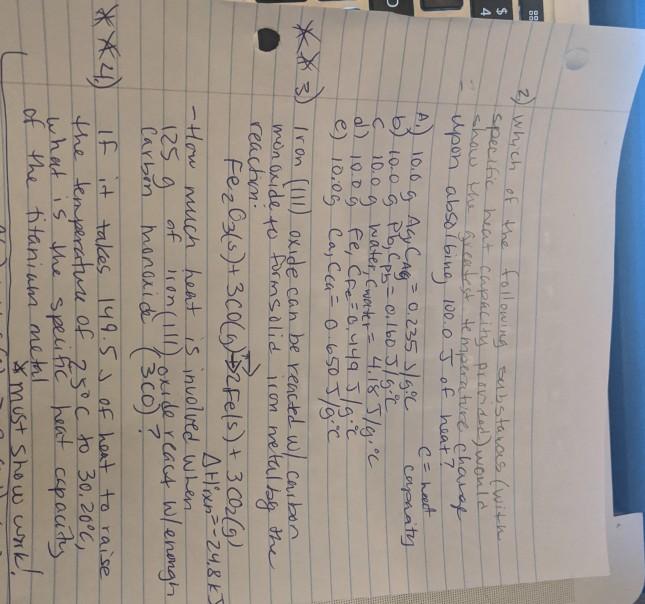 2) which of the following substances (with
specific heat capacity provided) would
show the greatest temperature change
- upon absorbing 100.0 J of heat?
A) 10.0 g Ag, CAg = 0.235 J/g°C
b) 10.0 g Pb, CPb = 0.160 J/g°C
C 10.0 g water, Cwater = 4.18 J/g.°C
d) 10.0 g Fe, CFe = 0.449 J/g°C
e) 10.0g Ca, Cca = 0.650 J/g.°C
C = heat
capacity
** 3) Iron (III) oxide can be reacted w/ carbon
monoxide to form solid iron metal by the
reaction:
Fe2O3(s) + 3CO(g) → 2Fe(s) + 3CO2(g)
ΔH°rxn = -24.8 kJ
- How much heat is involved when
125 g of iron (III) oxide react w/ enough
Carbon monoxide (3CO)?
** 4) If it takes 149.5 J of heat to raise
the temperature of 25°C to 30.20°C,
what is the specific heat capacity
of the titanium metal
*must show work!
$
4